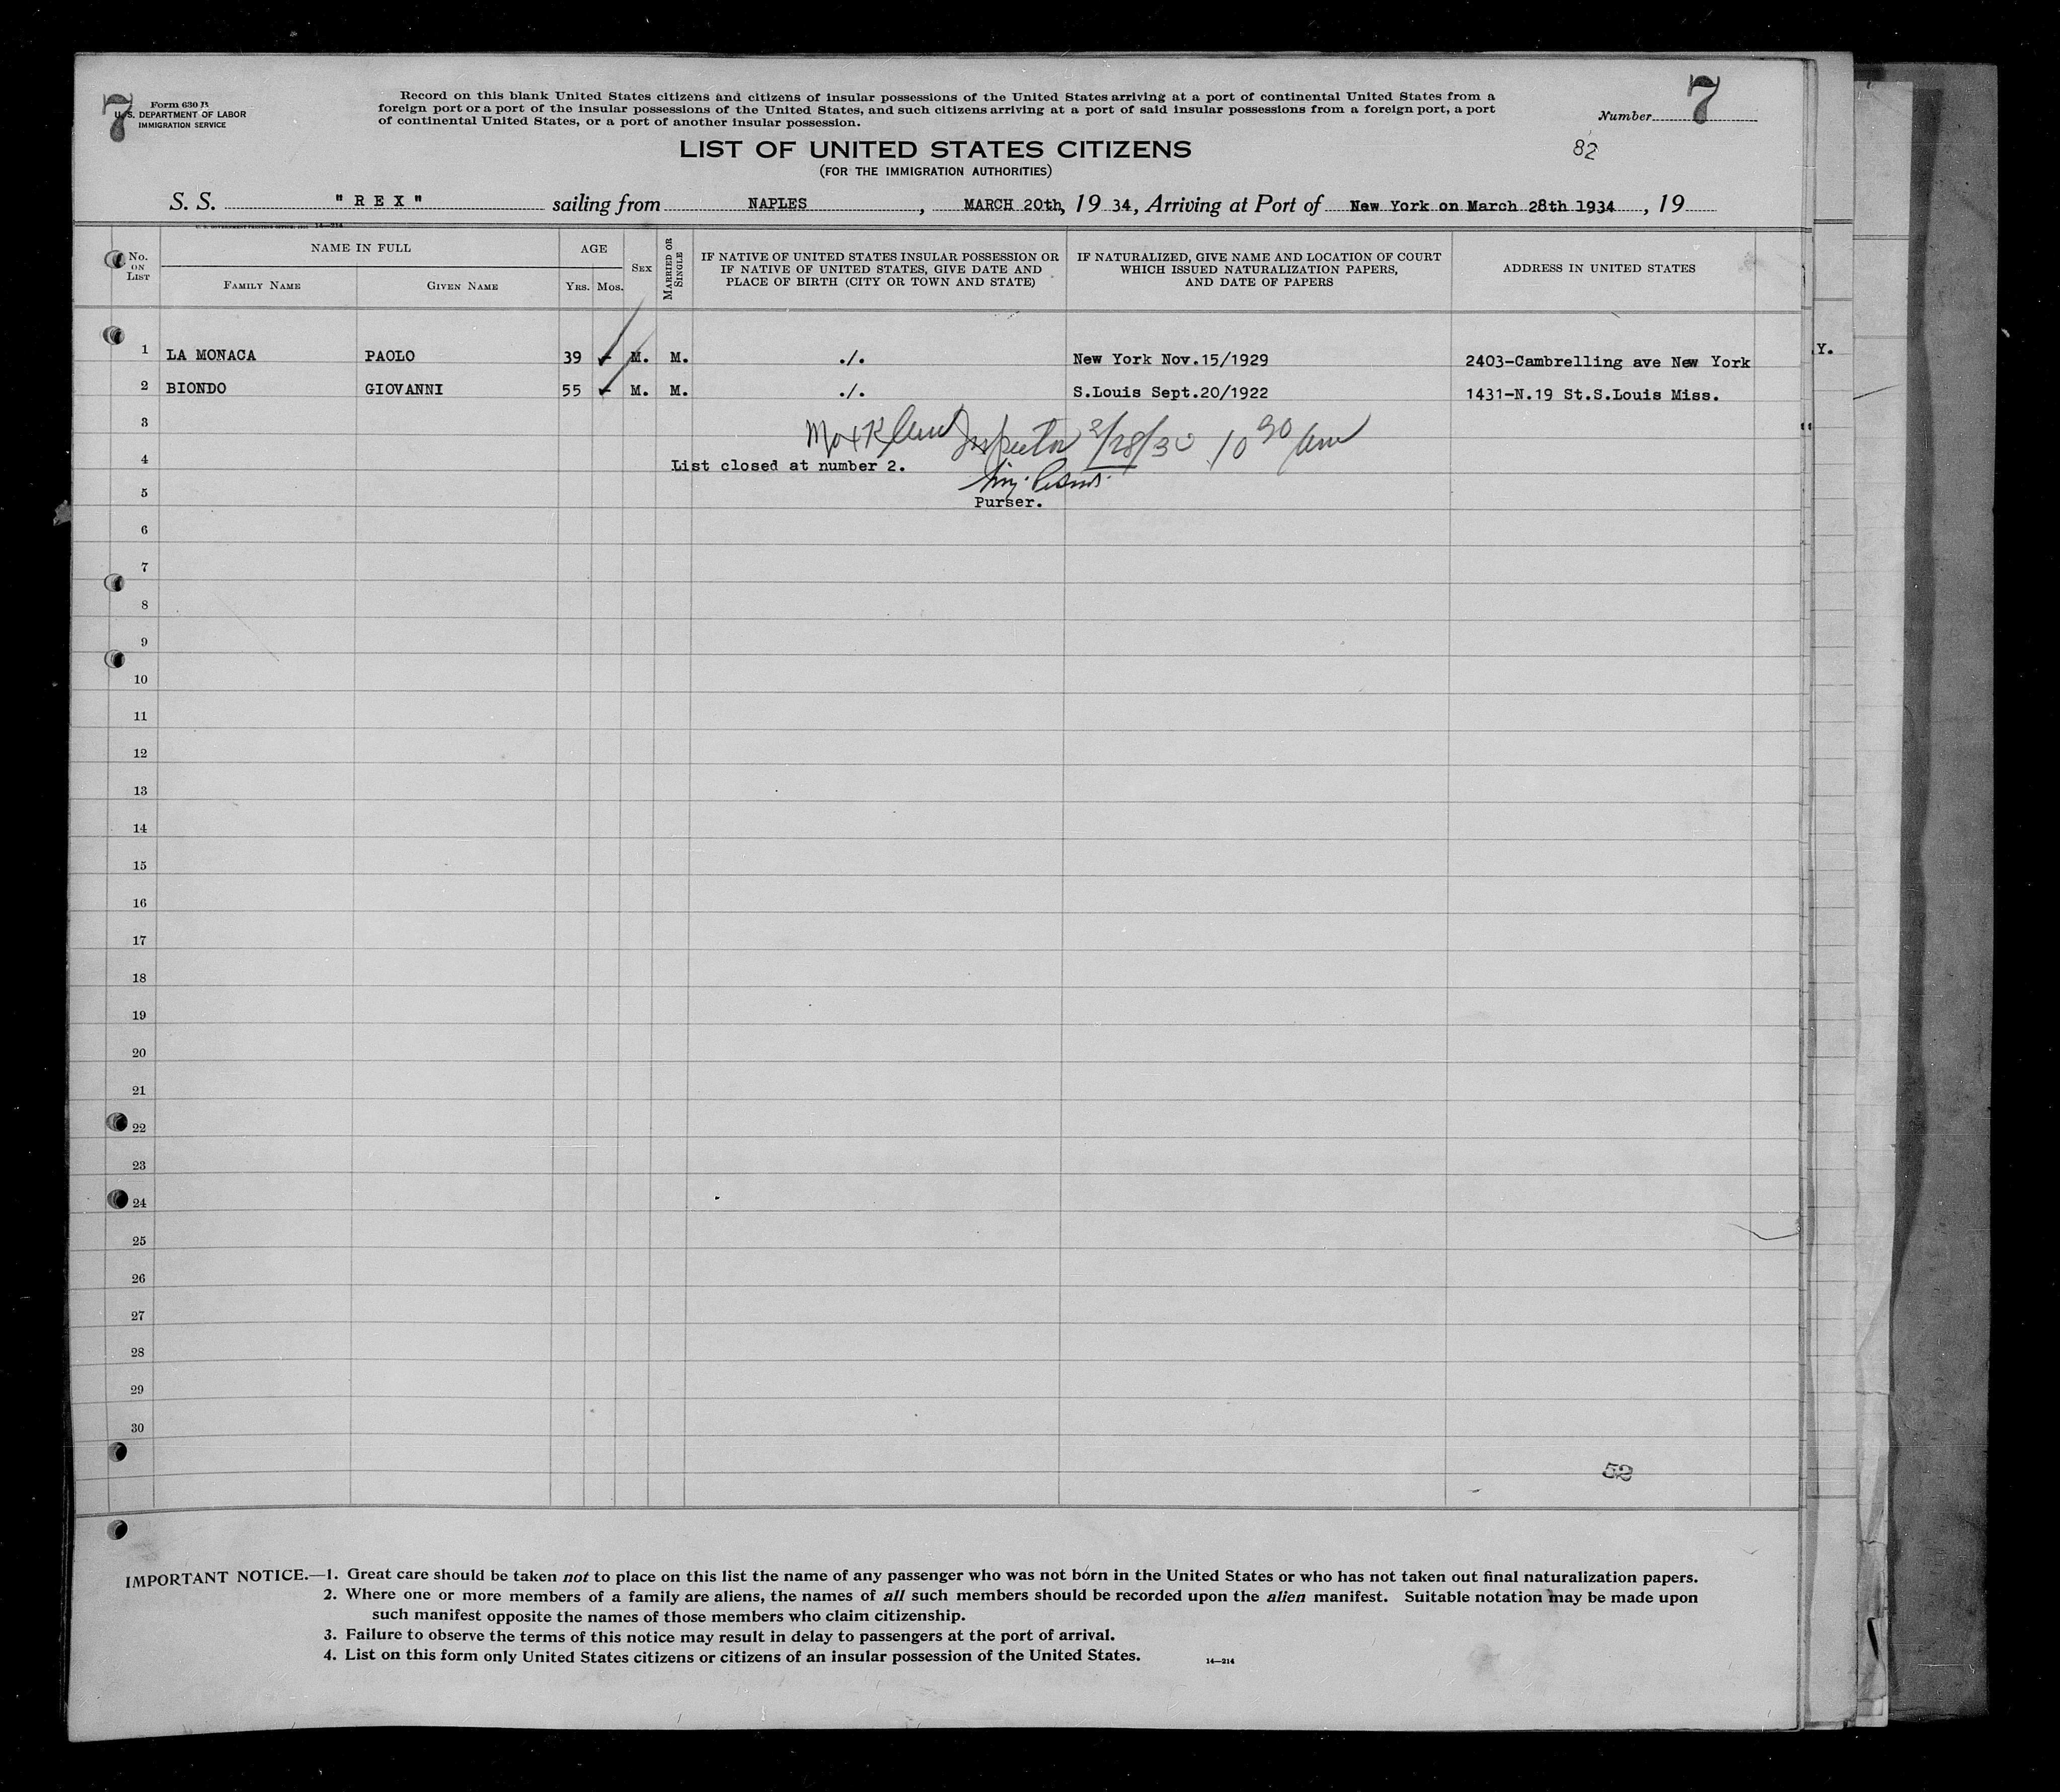 7
Form 630 B
U. S. DEPARTMENT OF LABOR
IMMIGRATION SERVICE
Record on this blank United States citizens and citizens of insular possessions of the United States arriving at a port of continental United States from a
foreign port or a port of the insular possessions of the United States, and such citizens arriving at a port of said insular possessions from a foreign port, a port
of continental United States, or a port of another insular possession.
Number 7
82
LIST OF UNITED STATES CITIZENS
(FOR THE IMMIGRATION AUTHORITIES)
S. S. " R E X " sailing from NAPLES, MARCH 20th, 19 34, Arriving at Port of New York on March 28th 1934, 19
14—214
No. ON LIST
NAME IN FULL
FAMILY NAME GIVEN NAME
AGE
YRS. MOS.
SEX
MARRIED OR SINGLE
IF NATIVE OF UNITED STATES INSULAR POSSESSION OR
IF NATIVE OF UNITED STATES, GIVE DATE AND
PLACE OF BIRTH (CITY OR TOWN AND STATE)
IF NATURALIZED, GIVE NAME AND LOCATION OF COURT
WHICH ISSUED NATURALIZATION PAPERS,
AND DATE OF PAPERS
ADDRESS IN UNITED STATES
1 LA MONACA PAOLO 39 M. M. ./. New York Nov.15/1929 2403-Cambrelling ave New York
Y.
2 BIONDO GIOVANNI 55 M. M. ./. S.Louis Sept.20/1922 1431-N.19 St.S.Louis Miss.
3 Inspector
"
4 List closed at number 2.
5 Purser.
6
7
8
9
10
11
12
13
14
15
16
17
18
19
20
21
22
23
24
25
26
27
28
29
30
52
IMPORTANT NOTICE.—1. Great care should be taken not to place on this list the name of any passenger who was not born in the United States or who has not taken out final naturalization papers.
2. Where one or more members of a family are aliens, the names of all such members should be recorded upon the alien manifest. Suitable notation may be made upon
such manifest opposite the names of those members who claim citizenship.
3. Failure to observe the terms of this notice may result in delay to passengers at the port of arrival.
4. List on this form only United States citizens or citizens of an insular possession of the United States.
14—214